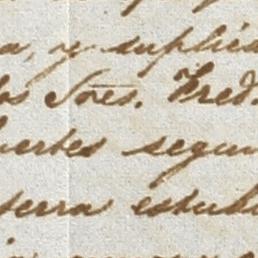 a, y suplica
los Sres. Fred.
uertes segun
terra estubi